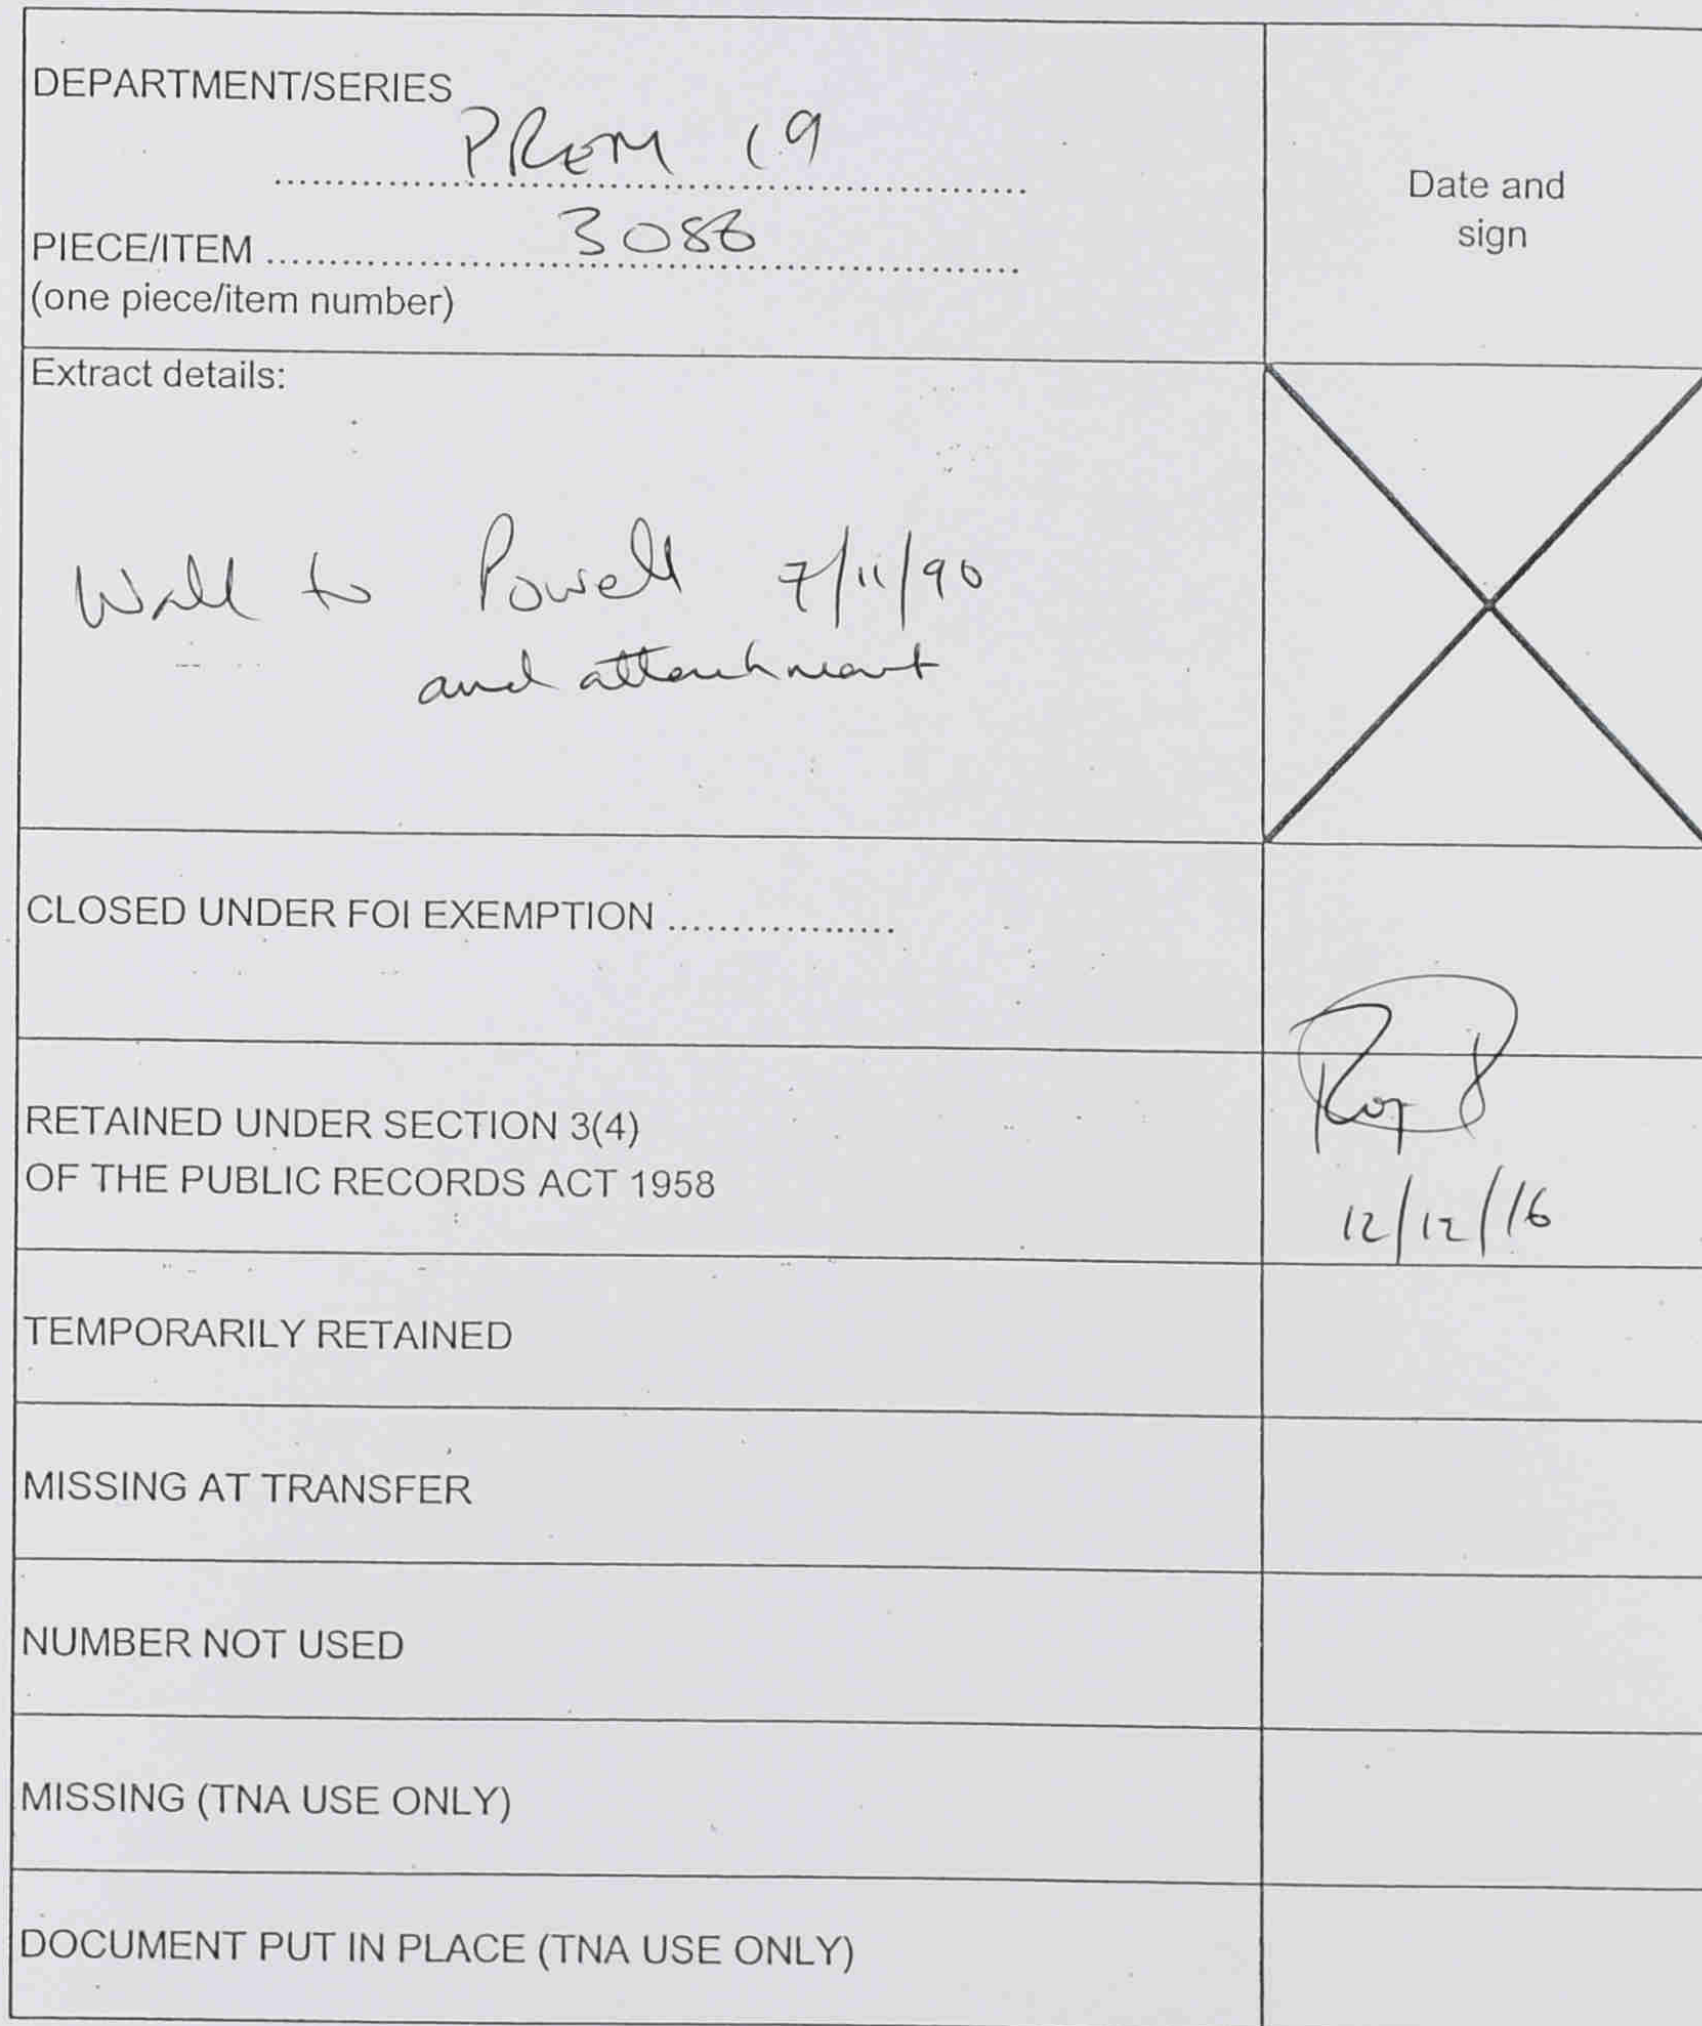 DEPARTMENT/SERIES
PREM 19
Date and
sign
PIECE/ITEM ........ 3086
(one piece/item number)
Extract details:
Wall to Powell 7/11/90
and attachment
CLOSED UNDER FOI EXEMPTION ..................
RETAINED UNDER SECTION 3(4)
OF THE PUBLIC RECORDS ACT 1958
12/12/16
TEMPORARILY RETAINED
MISSING AT TRANSFER
NUMBER NOT USED
MISSING (TNA USE ONLY)
DOCUMENT PUT IN PLACE (TNA USE ONLY)